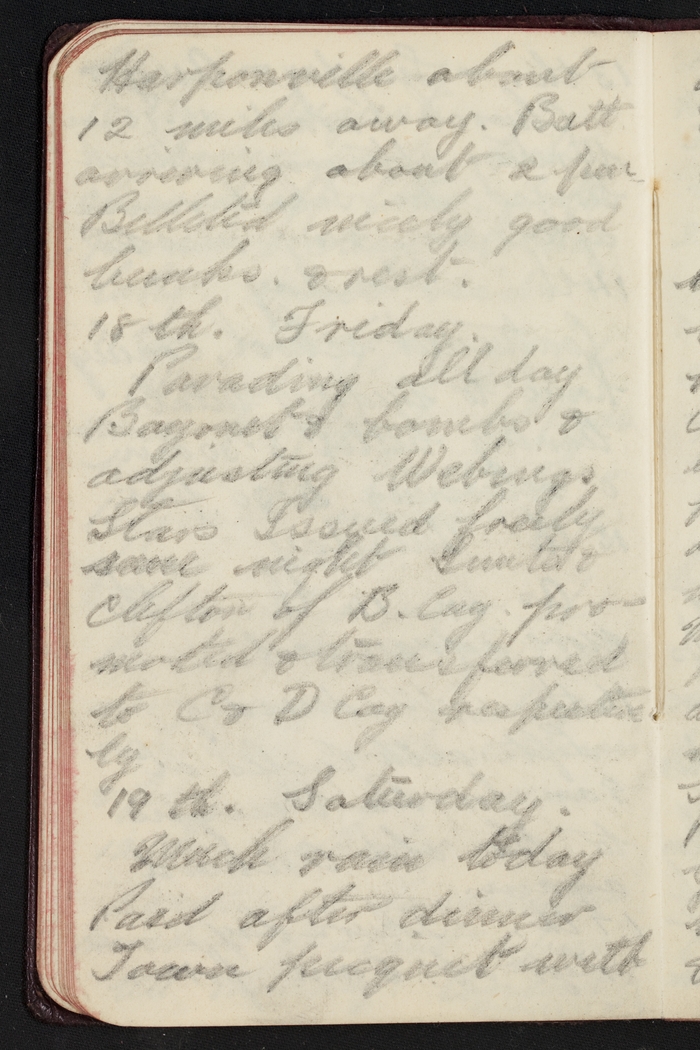 Harponville about
12 miles away. Batt
arriving about 2 pm
Billetid nicely good
bunks. & rest.
18 th. Friday.
Parading all day
Bayonets & bombs &
adjusting Webings
Stars Issued freely
same night &
Clifton of B. Coy. pro-
moted & transfered
to C & D Coy respective
ly
19 th. Saturday.
Much rain today
Paid after dinner
Town picquet with